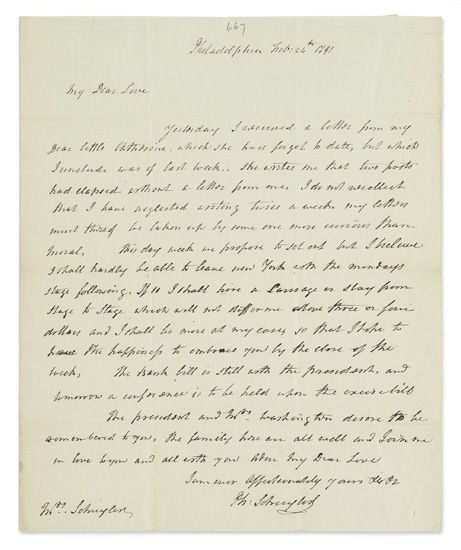 667
Philadelphia Feb: 24th 1791
My Dear Love
Yesterday I received a letter from my
Dear little Catherine, which she has forgot to date, but which
I conclude was of last week. She writes me that two posts
had elapsed without a letter from me, I do not recollect
that I have neglected writing twice a week my letters
must thereof be taken up by some one more curious than
moral, This day week we propose to set out but I believe
I shall hardly be able to leave new York with the mondays
Stage following. If so I shall hire a Carriage or stay from
Stage to Stage which will not differ me above three or four
dollars and I shall be more at my ease, so that I hope to
have the happiness to embrace you by the close of the
week, The bank bill is still with the president, and
tomorrow a conference is to be held upon the excise bill
The president and Mrs. Washington desire to be
remembered to you, the family here are all well and Join me
in love to you and all with you Adieu My Dear Love
I am ever Affectionately yours &c &c
Mrs. Schuyler. Ph: Schuyler